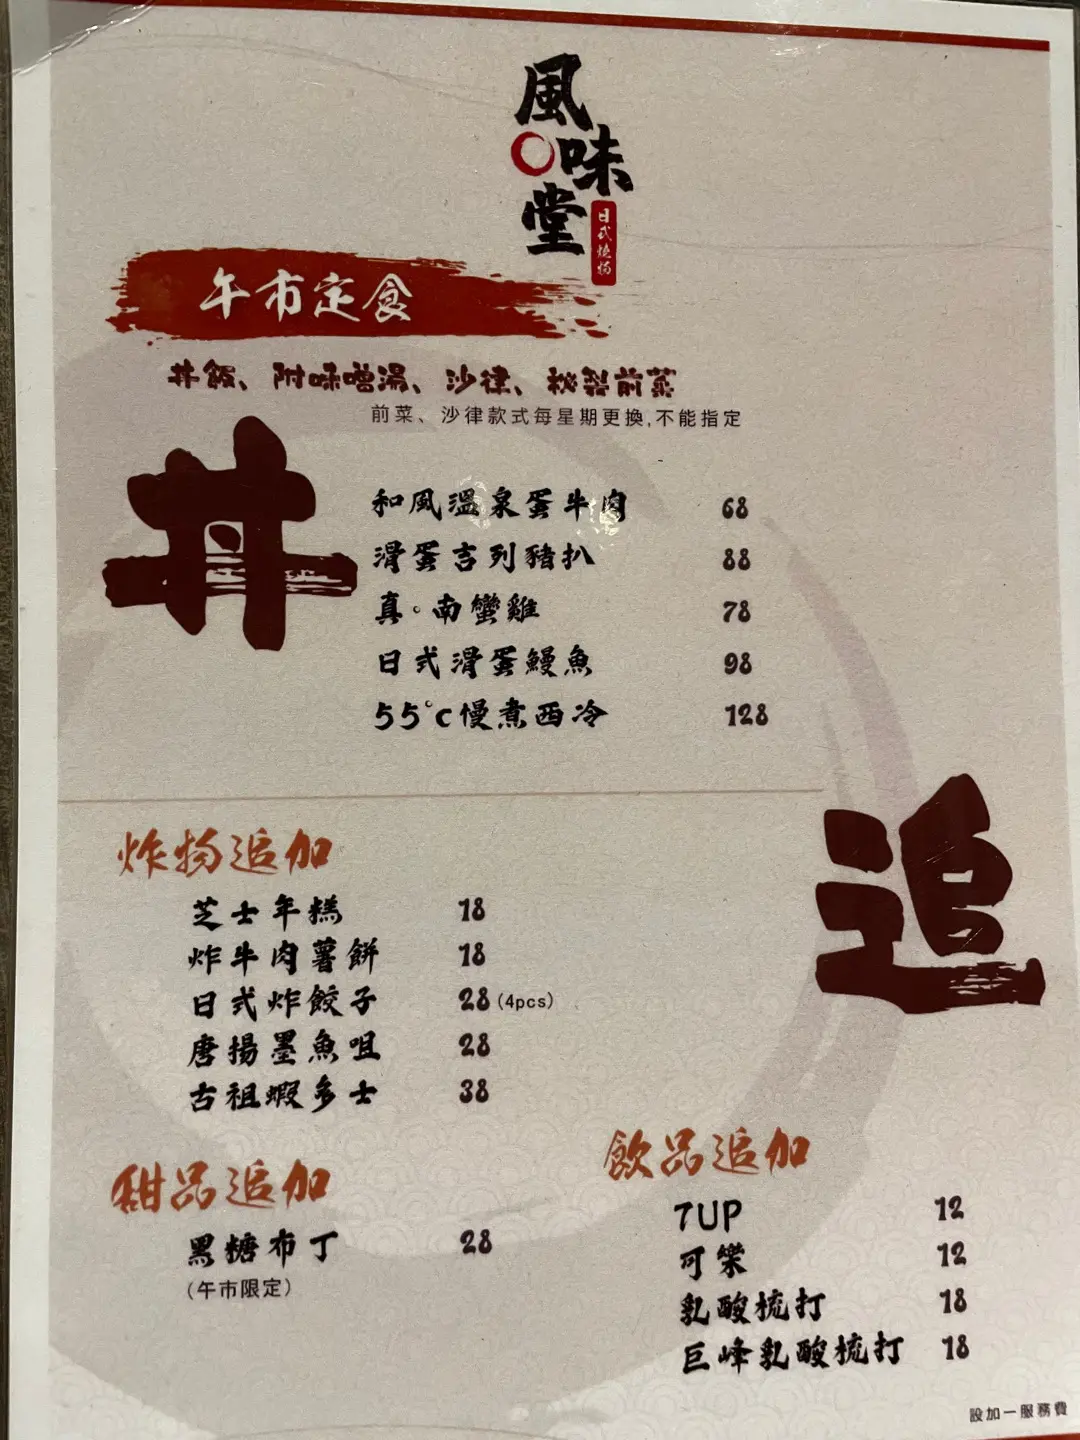 風味堂
日式燒物
午市定食
丼飯、附味噌湯、沙律、秘製前菜
前菜、沙律款式每星期更換,不能指定
丼
和風溫泉蛋牛肉 68
滑蛋吉列豬扒 88
真。南蠻雞 78
日式滑蛋鰻魚 98
55°c慢煮西冷 128
追
炸物追加
芝士年糕 18
炸牛肉薯餅 18
日式炸餃子 28(4pcs)
唐揚墨魚咀 28
古祖蝦多士 38
甜品追加
黑糖布丁 28
(午市限定)
飲品追加
7UP 12
可樂 12
乳酸梳打 18
巨峰乳酸梳打 18
設加一服務費